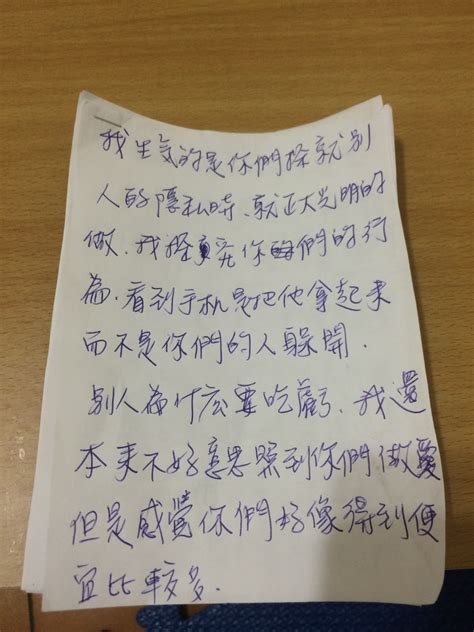 我生気的是你們探就別
人的隱私時、就正大光明的
做、我探究你們的行
為、看到手机是把他拿起来
而不是你們的人躲開．
別人為什広要吃虧、我還
本来不好意思照到你們做愛
但是感覺你們好像得到便
宜比較多．